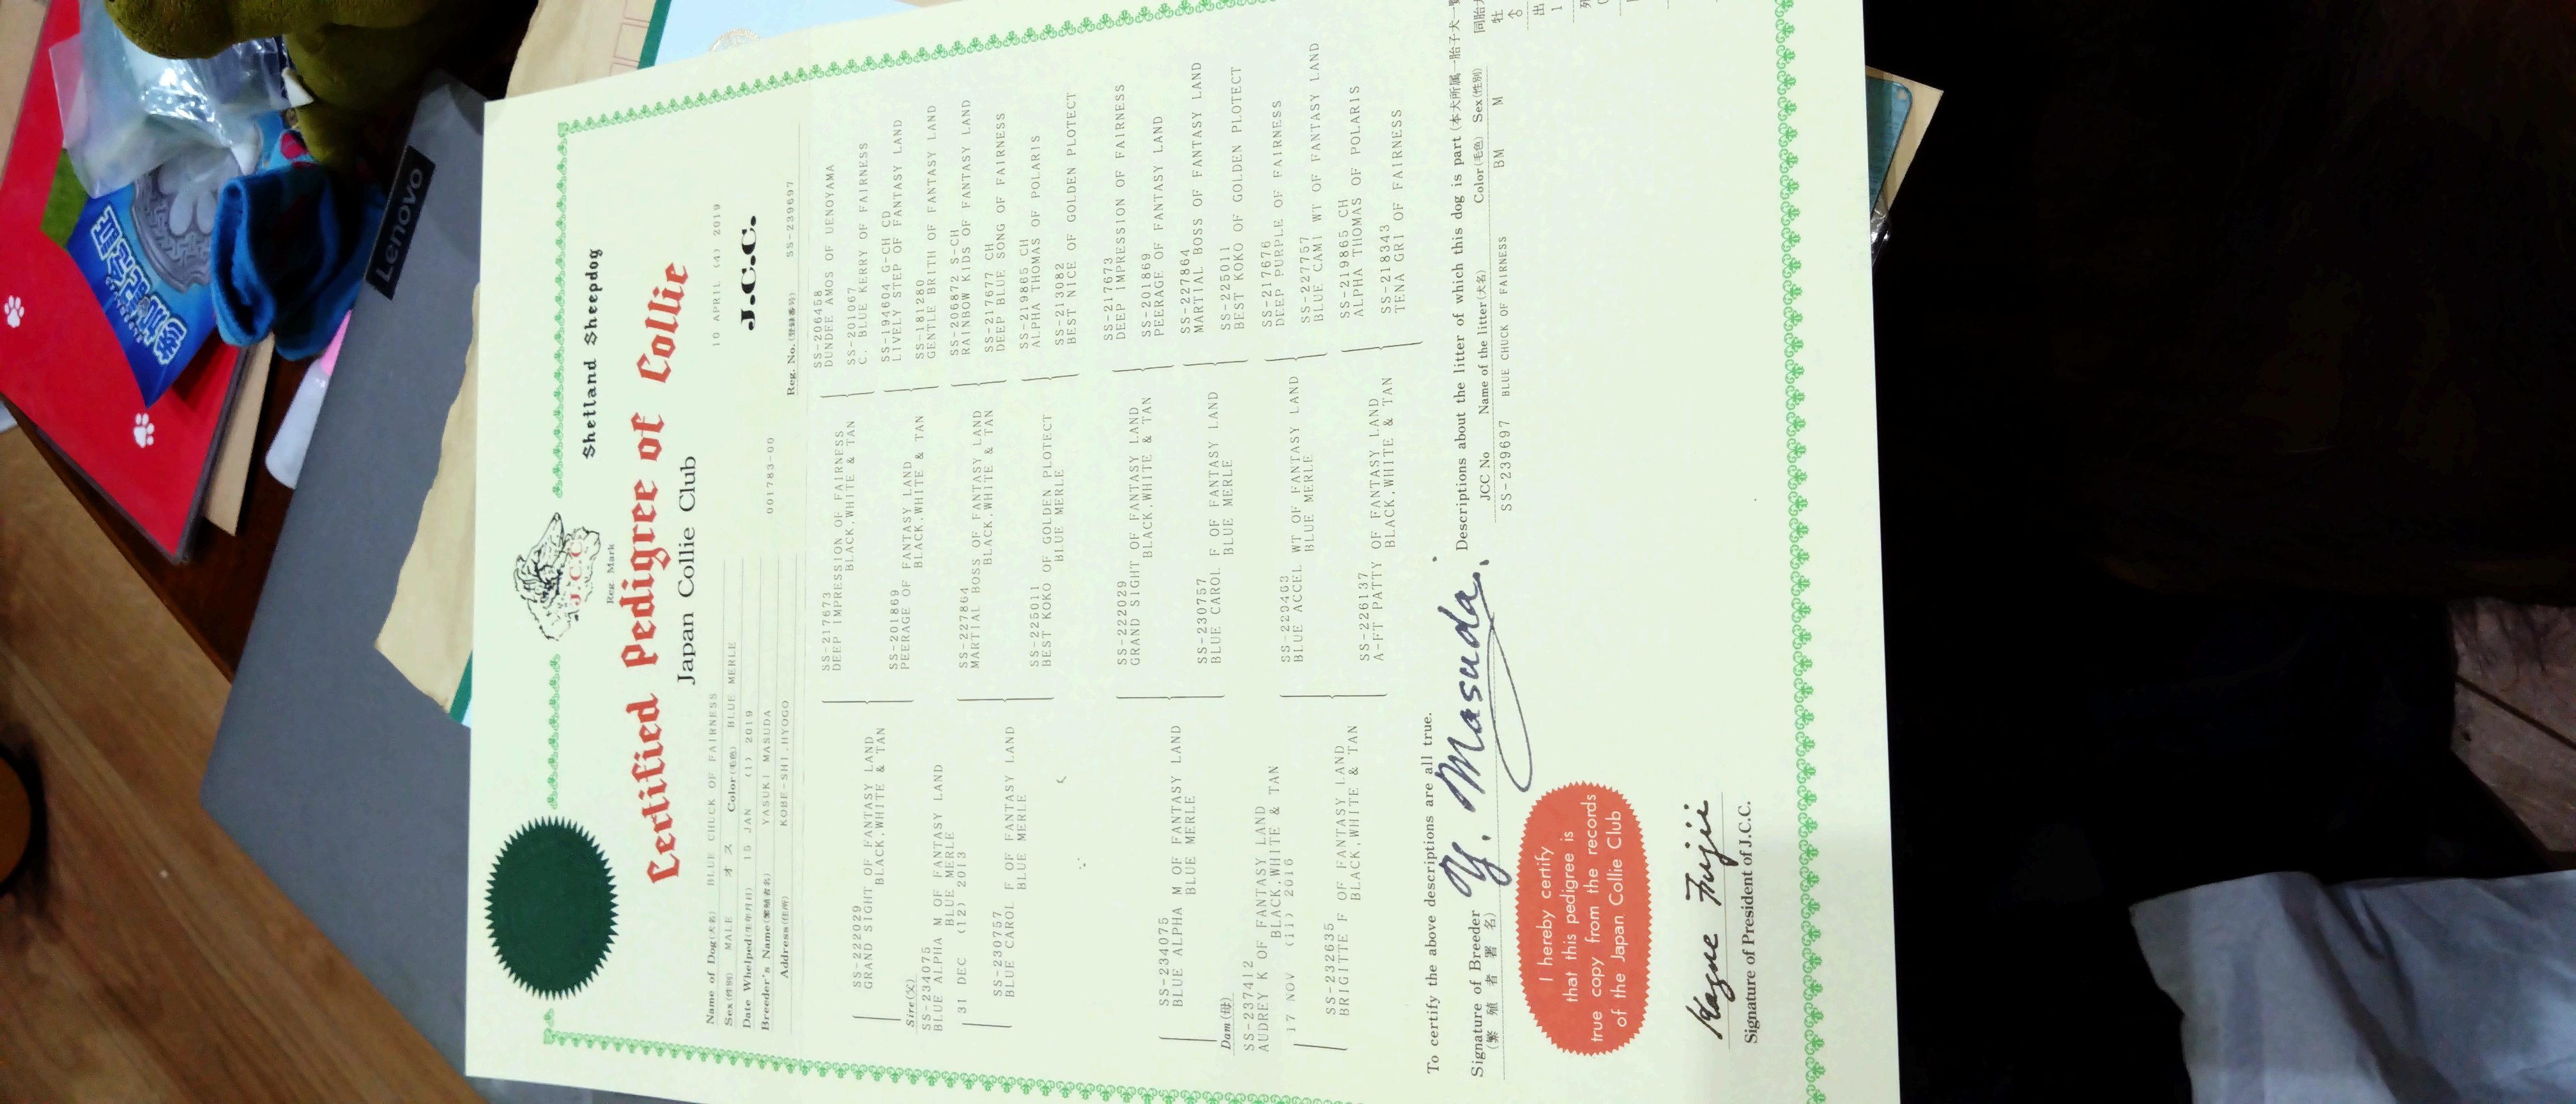 Shetland Sheepdog
J.C.C.
Reg. Mark
Certified Pedigree of Collie
Japan Collie Club
10 APRIL (4) 2019
J.C.C.
Name of Dog(犬名) BLUE CHUCK OF FAIRNESS
Sex(性別) MALE オス Color(毛色) BLUE MERLE
Date Whelped(生年月日) 15 JAN (1) 2019
Breeder's Name(繁殖者名) YASUKI MASUDA
001783-00
Address(住所) KOBE-SHI,HYOGO
Reg. No.(登録番号) SS-239697
SS-222029
GRAND SIGHT OF FANTASY LAND
BLACK,WHITE & TAN
Sire(父)
SS-234075
BLUE ALPHA M OF FANTASY LAND
BLUE MERLE
31 DEC (12) 2013
SS-230757
BLUE CAROL F OF FANTASY LAND
BLUE MERLE
SS-234075
BLUE ALPHA M OF FANTASY LAND
BLUE MERLE
Dam(母)
SS-237412
AUDREY K OF FANTASY LAND
BLACK,WHITE & TAN
17 NOV (11) 2016
SS-232635
BRIGITTE F OF FANTASY LAND
BLACK,WHITE & TAN
SS-217673
DEEP IMPRESSION OF FAIRNESS
BLACK,WHITE & TAN
SS-201869
PEERAGE OF FANTASY LAND
BLACK,WHITE & TAN
SS-227864
MARTIAL BOSS OF FANTASY LAND
BLACK,WHITE & TAN
SS-225011
BEST KOKO OF GOLDEN PLOTECT
BLUE MERLE
SS-222029
GRAND SIGHT OF FANTASY LAND
BLACK,WHITE & TAN
SS-230757
BLUE CAROL F OF FANTASY LAND
BLUE MERLE
SS-229463
BLUE ACCEL WT OF FANTASY LAND
BLUE MERLE
SS-226137
A-FT PATTY OF FANTASY LAND
BLACK,WHITE & TAN
SS-206458
DUNDEE AMOS OF UENOYAMA
SS-201067
C. BLUE KERRY OF FAIRNESS
SS-194604 G-CH CD
LIVELY STEP OF FANTASY LAND
SS-181280
GENTLE BRITH OF FANTASY LAND
SS-206872 S-CH
RAINBOW KIDS OF FANTASY LAND
SS-217677 CH
DEEP BLUE SONG OF FAIRNESS
SS-219865 CH
ALPHA THOMAS OF POLARIS
SS-213082
BEST NICE OF GOLDEN PLOTECT
SS-217673
DEEP IMPRESSION OF FAIRNESS
SS-201869
PEERAGE OF FANTASY LAND
SS-227864
MARTIAL BOSS OF FANTASY LAND
SS-225011
BEST KOKO OF GOLDEN PLOTECT
SS-217676
DEEP PURPLE OF FAIRNESS
SS-227757
BLUE CAMI WT OF FANTASY LAND
SS-219865 CH
ALPHA THOMAS OF POLARIS
SS-218343
TENA GRI OF FAIRNESS
To certify the above descriptions are all true.
Signature of Breeder
(繁殖者署名)
Y. Masuda
Descriptions about the litter of which this dog is part (本犬所属一胎子犬一覧
JCC No Name of the litter(犬名) Color(毛色) Sex(性別)
SS-239697 BLUE CHUCK OF FAIRNESS BM M
同胎
牡
♂
出
1
I hereby certify
that this pedigree is
true copy from the records
of the Japan Collie Club
Kazue Fujii
Signature of President of J.C.C.
Lenovo